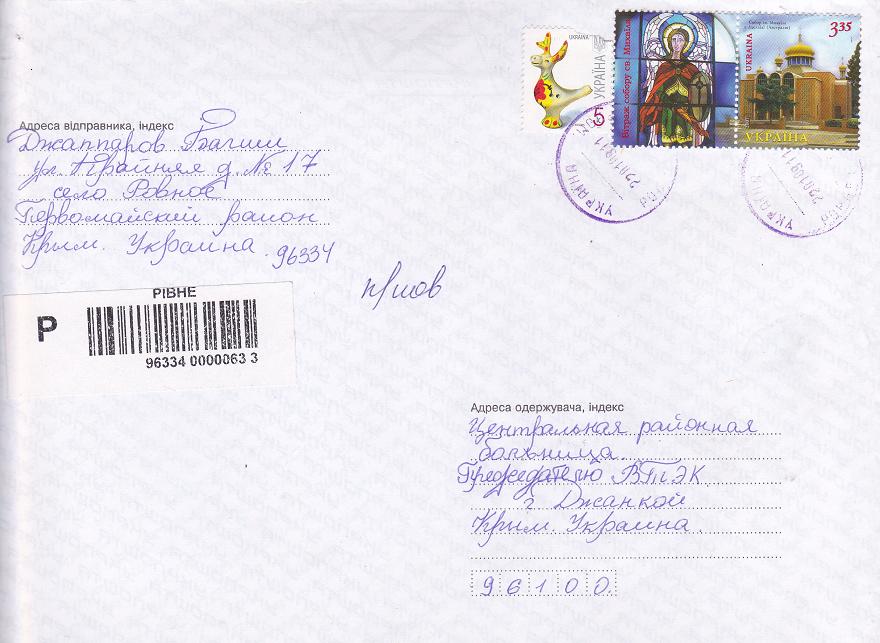 UKRAINA
УКРАЇНА
5
Вітраж собору св. Михаїла
UKRAINE
Собор св. Михаїла
3.35
УКРАЇНА
УКРАЇНА
УКРАЇНА
Адреса відправника, індекс
Джаппаров
ул. Крайняя д. № 17
село Ровное
Первомайский район
Крым. Украина 96334
РІВНЕ
P
96334 0000063 3
Адреса одержувача, індекс
Центральная районная
больница.
Председателю ВТЭК
г Джанкой
Крым. Украина.
96100